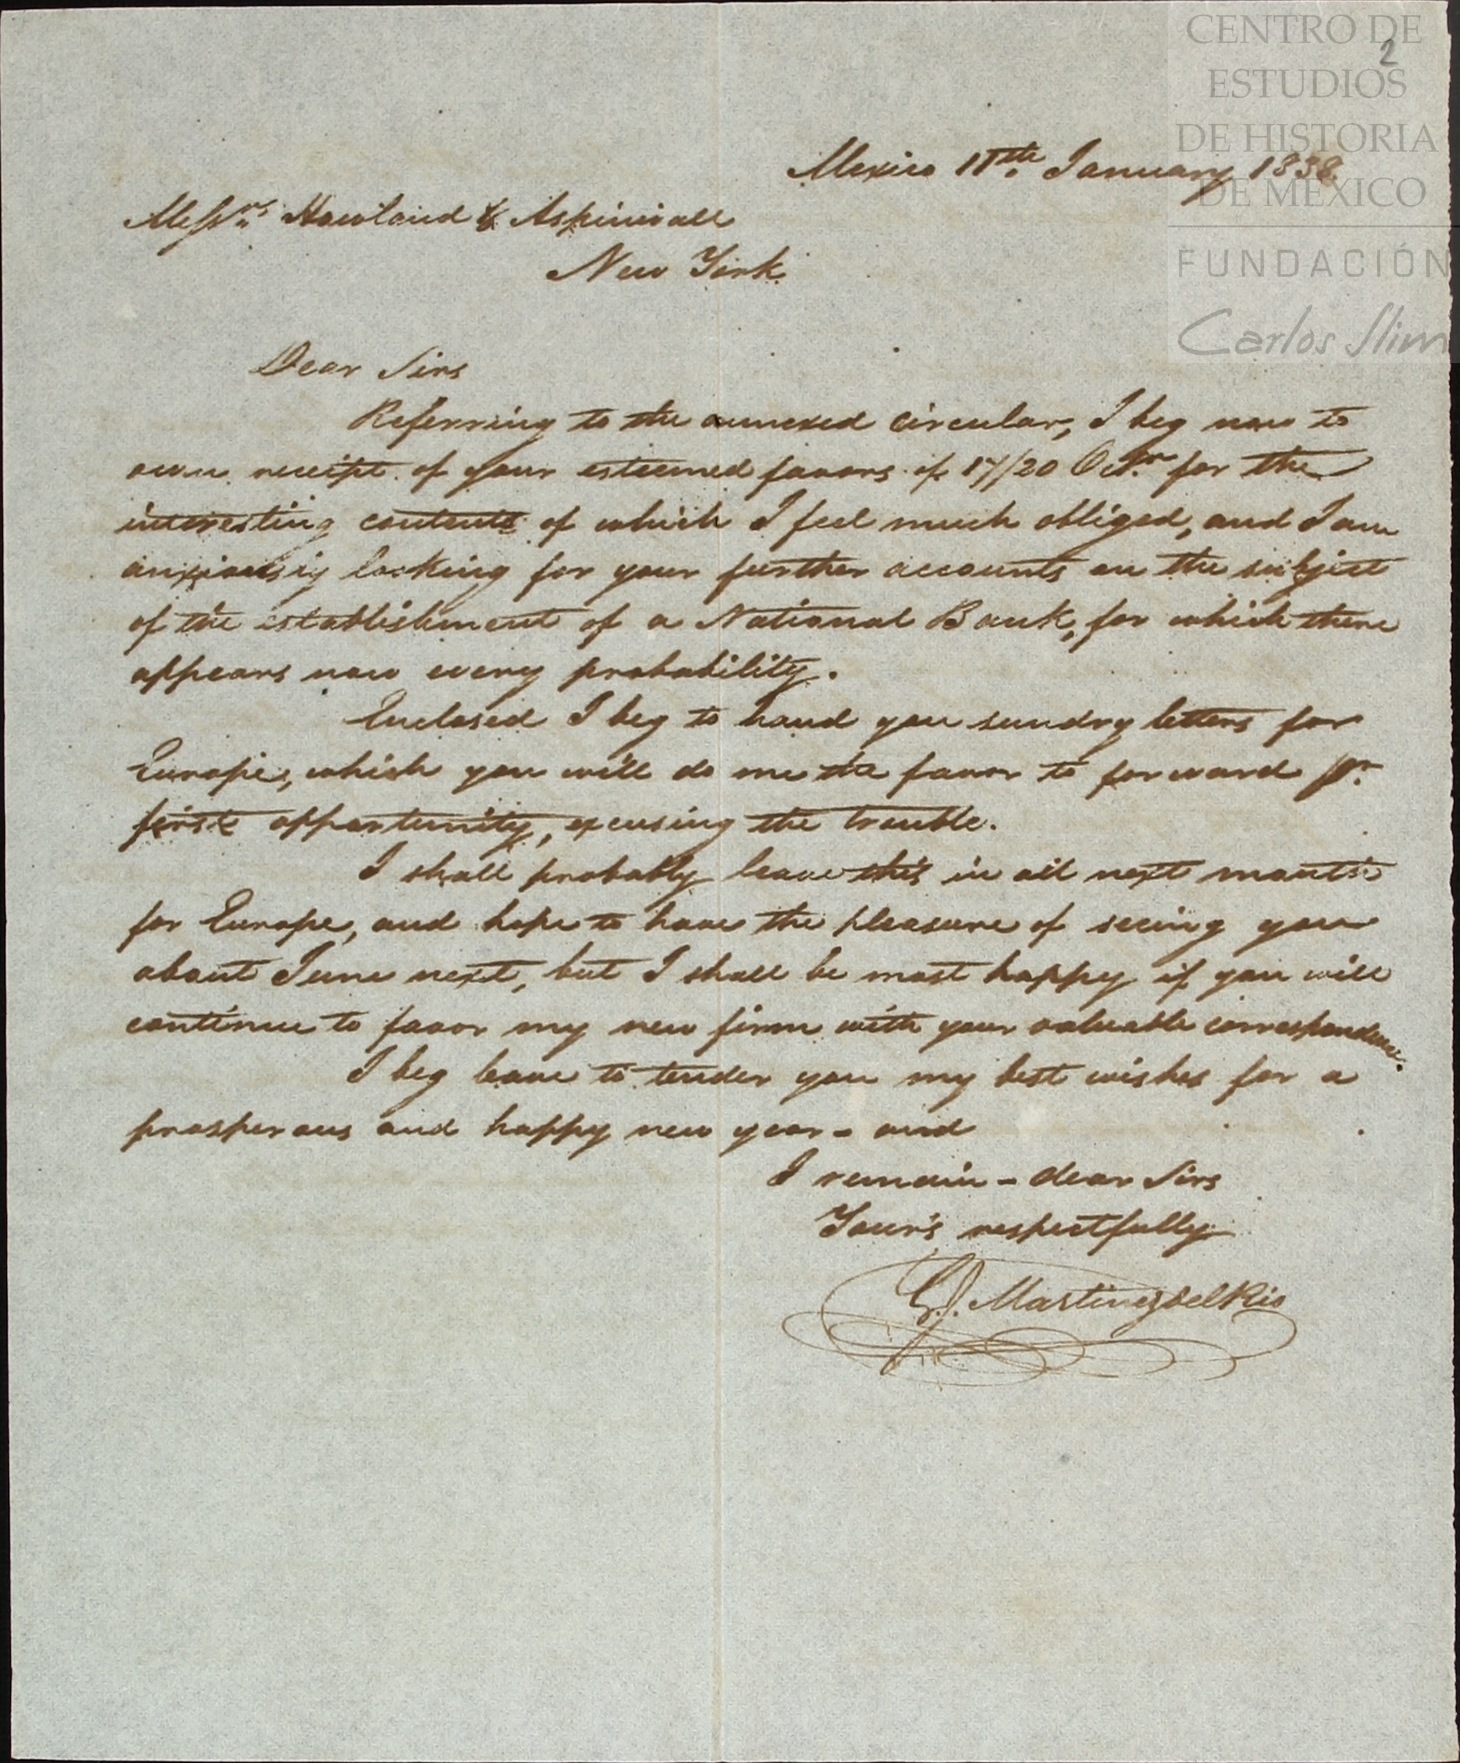 CENTRO DE
ESTUDIOS
DE HISTORIA
DE MÉXICO
FUNDACIÓN
Carlos Slim
2
Mexico 11th. January 1838
Messrs. Howland & Aspinwall
New York
Dear Sirs
Referring to the annexed circular, I beg now to
own receipt of your esteemed favors of 17/20 Octr. for the
interesting contents of which I feel much obliged, and I am
anxiously looking for your further accounts on the subject
of the establishment of a National Bank, for which there
appears now every probability.
Enclosed I beg to hand you sundry letters for
Europe, which you will do me the favor to forward pr.
first opportunity, excusing the trouble.
I shall probably leave this in all next month
for Europe, and hope to have the pleasure of seeing you
about June next, but I shall be most happy if you will
continue to favor my new firm with your valuable correspondence.
I beg leave to tender you my best wishes for a
prosperous and happy new year - and
I remain - dear Sirs
Your's respectfully
G. J. Martinez del Rio